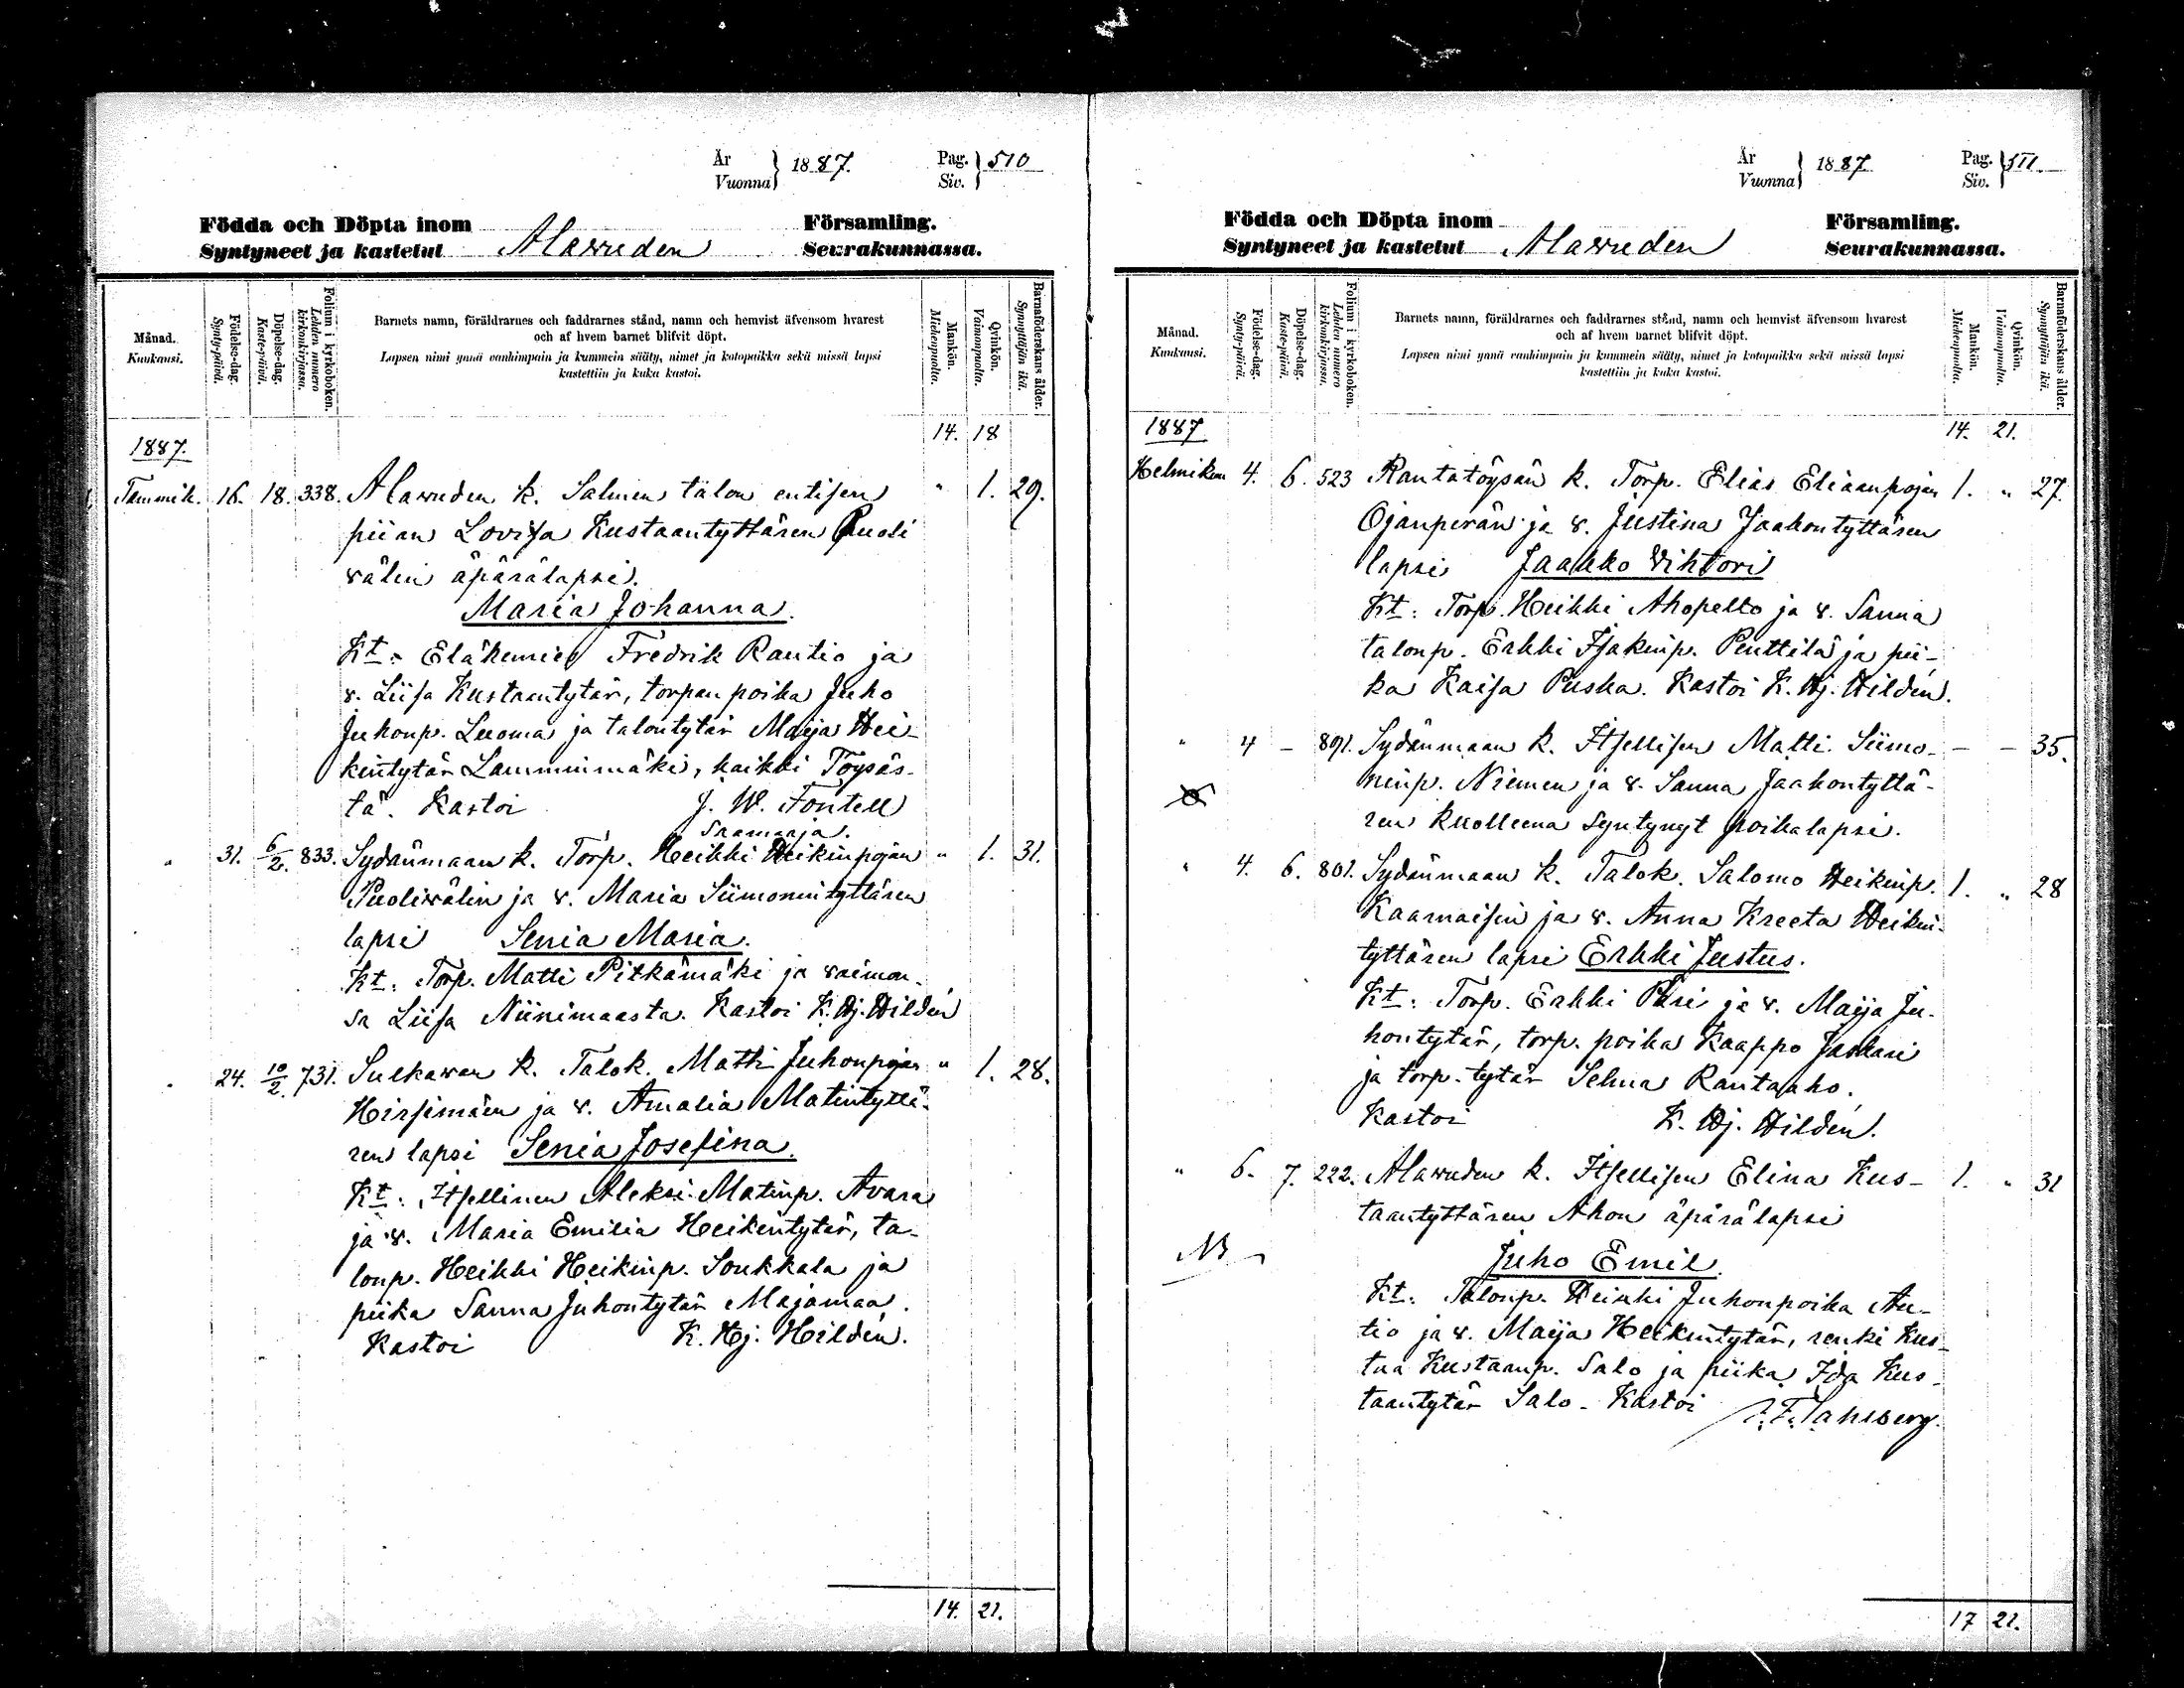 År
Vuonna } 1887.
Pag.
Siv. } 510
Födda och Döpta inom Församling.
Syntyneet ja kastetut Alawuden Seurakunnassa.
Månad.
Kuukausi.
Födelse-dag.
Synty-päivä.
Döpelse-dag.
Kaste-päivä.
Folium i kyrkoboken.
Lehden numero
kirkonkirjassa.
Barnets namn, föräldrarnes och faddrarnes stånd, namn och hemvist äfvensom hvarest
och af hvem barnet blifvit döpt.
Lapsen nimi ynnä vanhimpain ja kummein sääty, nimet ja kotopaikka sekä missä lapsi
kastettiin ja kuka kastoi.
Mankön.
Miehenpuolta.
Qvinkön.
Vaimonpuolta.
Barnaföderskans ålder.
Synnyttäjän ikä.
1887. 14. 18
Tammik. 16. 18. 338. Alawuden k. Salmen talon entisen " 1. 29.
piian Lovisa Kustaantyttären Puoli
välin äpärälapsi.
Maria Johanna.
Kt: Eläkemies Fredrik Rautio ja
v. Liisa Kustaantytär, torpan poika Juho
Juhonp. Luoma ja talontytär Maija Hei-
kintytär Lamminmäki, kaikki Töysäs-
tä. Kastoi J. W. Fontell
Saamaaja.
" 31. 6/2. 833. Sydänmaan k. Torp. Heikki Heikinpojan " 1. 31.
Puoliwälin ja v. Maria Siimonintyttären
lapsi Senia Maria.
Kt: Torp. Matti Pitkämäki ja vaimon-
sa Liisa Niinimaasta. Kastoi K. Hj. Hildén
" 24. 10/2. 731. Sulkawan k. Talok. Matti Juhonpojan " 1. 28.
Hirsimäen ja v. Amalia Matintyttä-
ren lapsi Senia Josefina.
Kt: Itsellinen Aleksi Matinp. Avara
ja v. Maria Emilia Heikintytär, ta-
lonp. Heikki Heikinp. Soukkala ja
piika Sanna Juhontytär Majamaa.
Kastoi K. Hj. Hildén.
14. 21.
År
Vuonna } 1887.
Pag.
Siv. } 511.
Födda och Döpta inom Församling.
Syntyneet ja kastetut Alawuden Seurakunnassa.
Månad.
Kuukausi.
Födelse-dag.
Synty-päivä.
Döpelse-dag.
Kaste-päivä.
Folium i kyrkoboken.
Lehden numero
kirkonkirjassa.
Barnets namn, föräldrarnes och faddrarnes stånd, namn och hemvist äfvensom hvarest
och af hvem barnet blifvit döpt.
Lapsen nimi ynnä vanhimpain ja kummein sääty, nimet ja kotopaikka sekä missä lapsi
kastettiin ja kuka kastoi.
Mankön.
Miehenpuolta.
Qvinkön.
Vaimonpuolta.
Barnaföderskans ålder.
Synnyttäjän ikä.
1887 14. 21.
Helmikuu 4. 6. 523 Rantatöysän k. Torp. Elias Eliaanpojan 1. " 27.
Ojanperän ja v. Justina Jaakontyttären
lapsi Jaakko Vihtori
Kt: Torp. Heikki Ahopelto ja v. Sanna
talonp. Erkki Isakinp. Penttilä ja pii-
ka Kaisa Puska. Kastoi K. Hj. Hildén.
" 4 – 891. Sydänmaan k. Itsellisen Matti Siimo- – – 35.
ninp. Niemen ja v. Sanna Jaakontyttä-
ren kuolleena syntynyt poikalapsi.
" 4. 6. 801. Sydänmaan k. Talok. Salomo Heikinp. 1. " 28
Kaarnaisen ja v. Anna Kreeta Heikin-
tyttären lapsi Erkki Justus.
Kt: Torp. Erkki ja v. Maija Ju-
hontytär, torp. poika Kaappo Jaskari
ja torp. tytär Selma Rantaaho.
Kastoi K. Hj. Hildén.
" 6. 7. 222. Alawuden k. Itsellisen Elina Kus- 1. " 31
taantyttären Ahon äpärälapsi
NB Juho Emil.
Kt: Talonp. Heikki Juhonpoika Au-
tio ja v. Maija Heikintytär, renki Kus-
taa Kustaanp. Salo ja piika Ida Kus-
taantytär Salo. Kastoi
17 21.